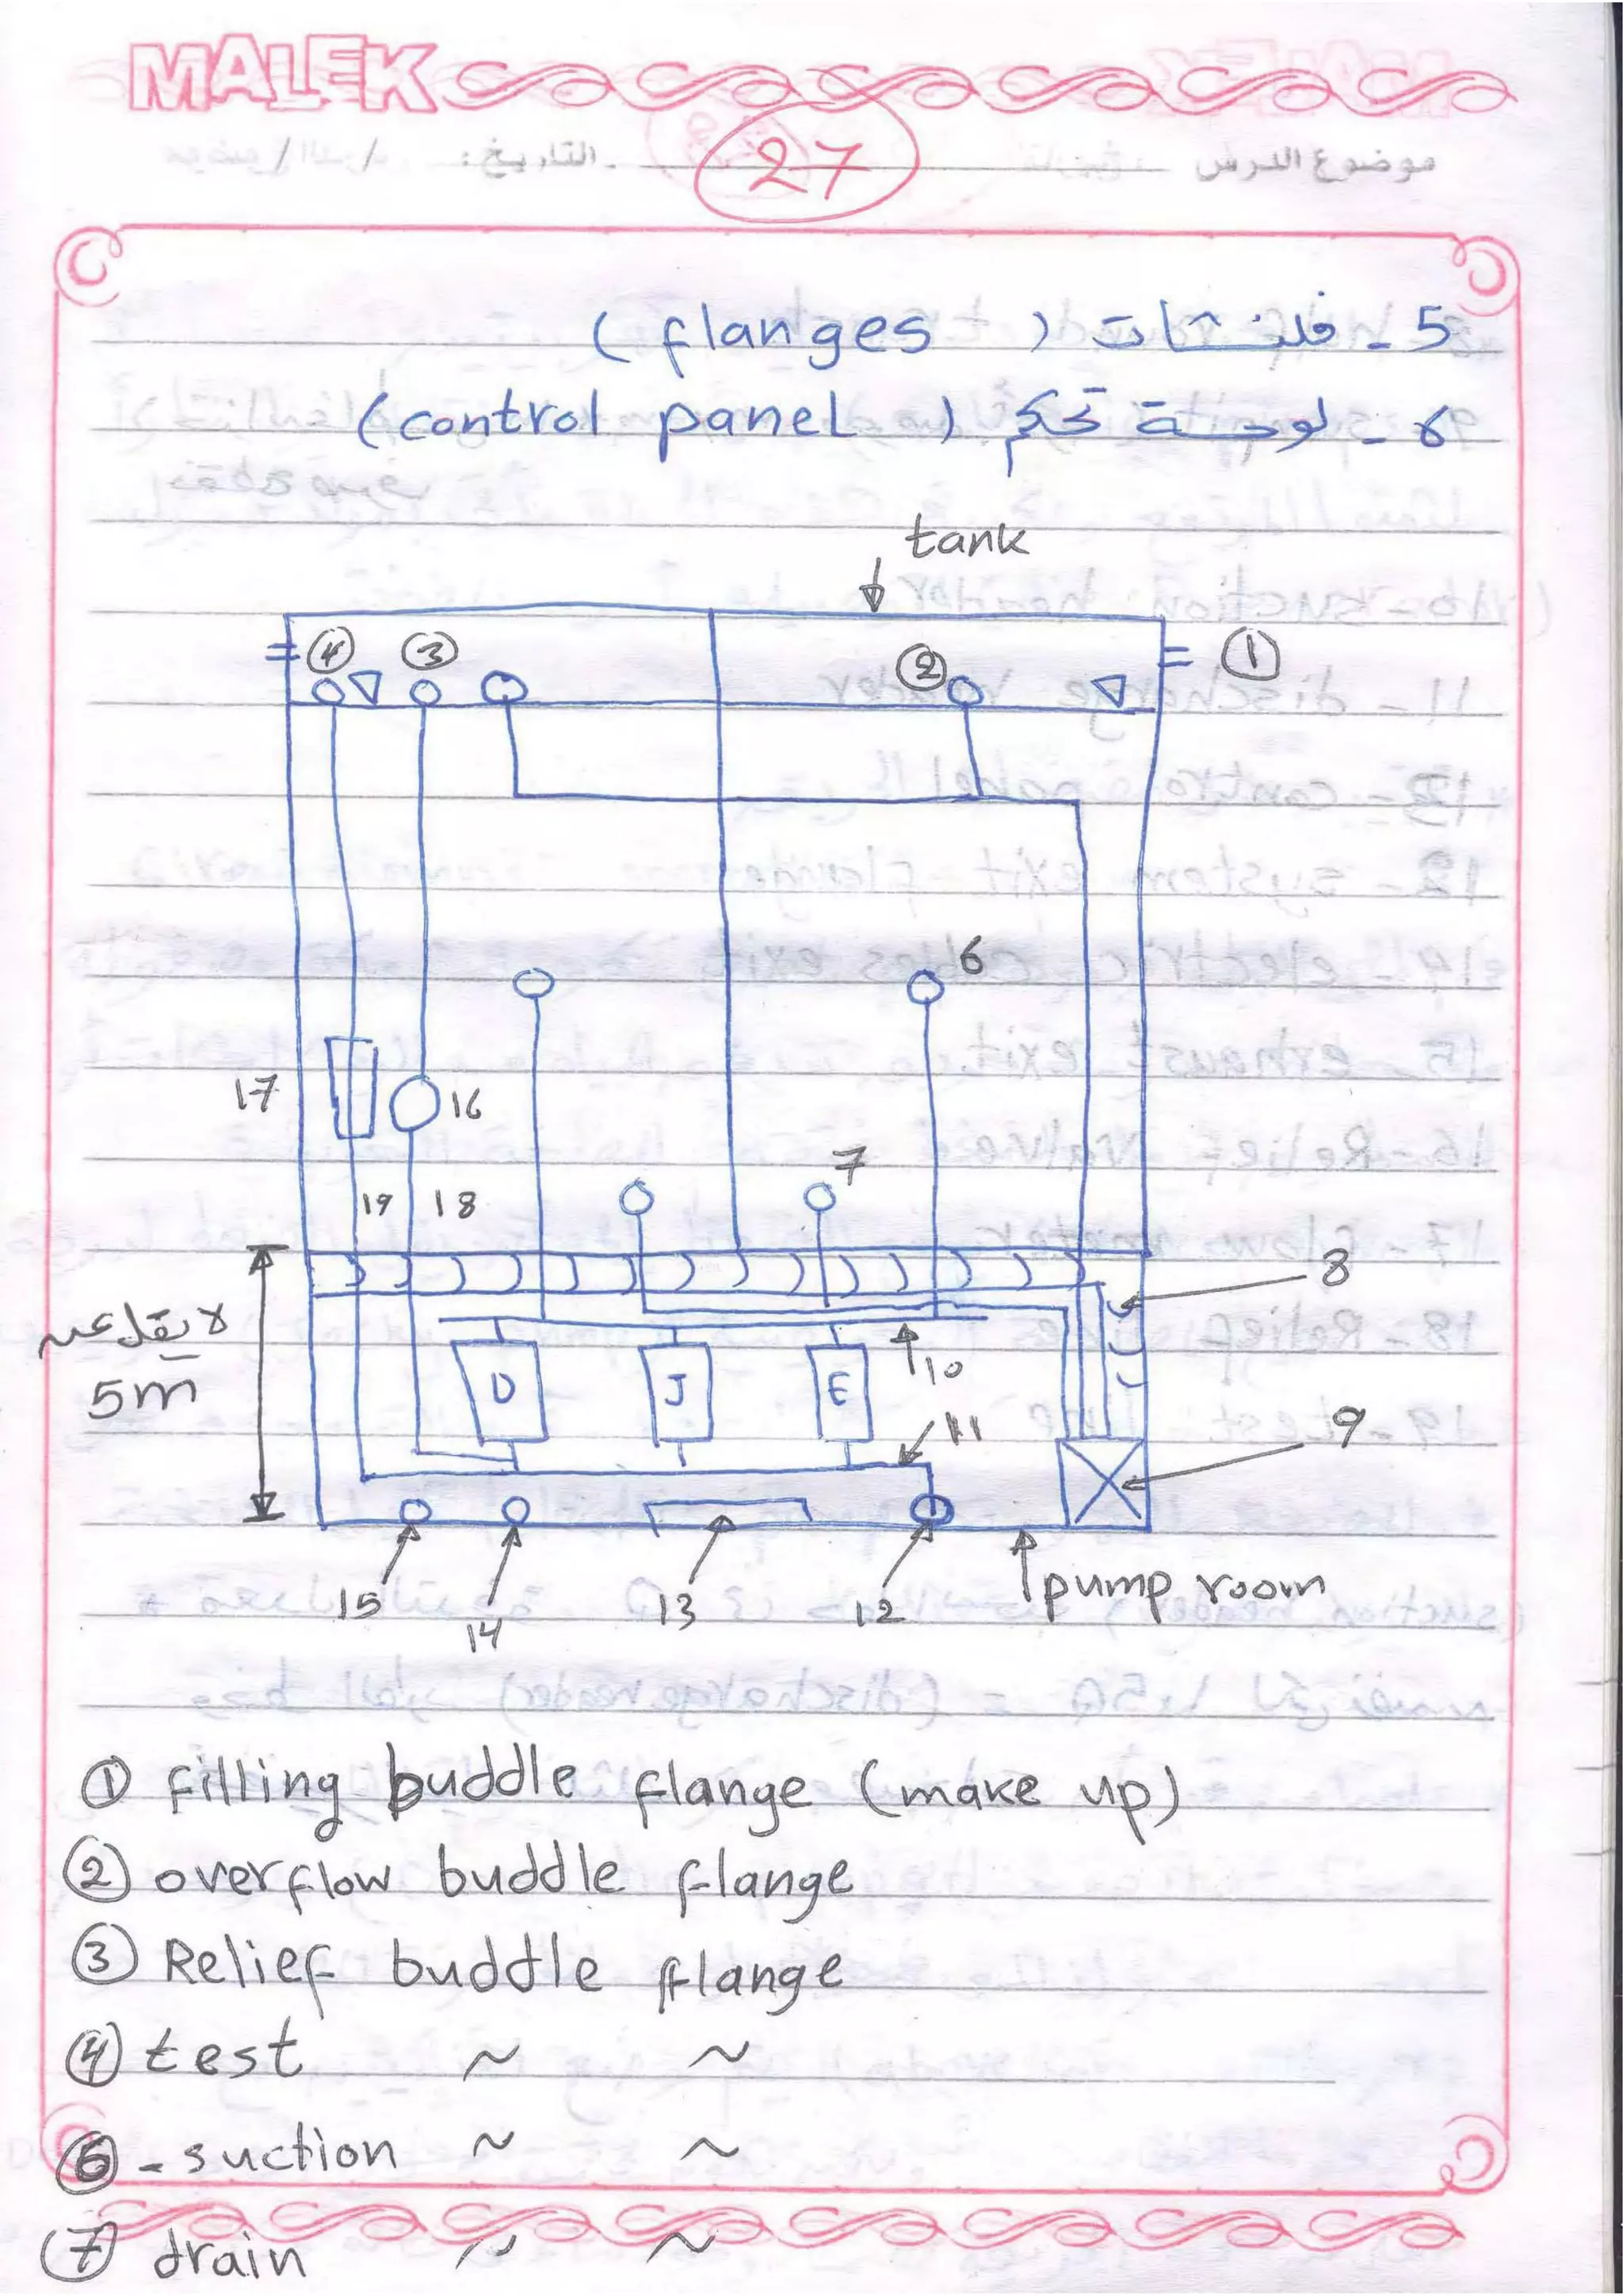 MALEK
موضوع الدرس
27
التاريخ: / /
5 - فلنشات ( flanges )
6 - لوحة تحكم ( control panel )
tank
④ ③ ② ①
6
17 16
7
19 18
8
لا يقل عن
5m
D J E
10
11
9
15 14 13 12
pump room
① filling buddle flange (make up)
② overflow buddle flange
③ Relief buddle flange
④ test ~ ~
⑥ - suction ~ ~
⑦ drain ~ ~